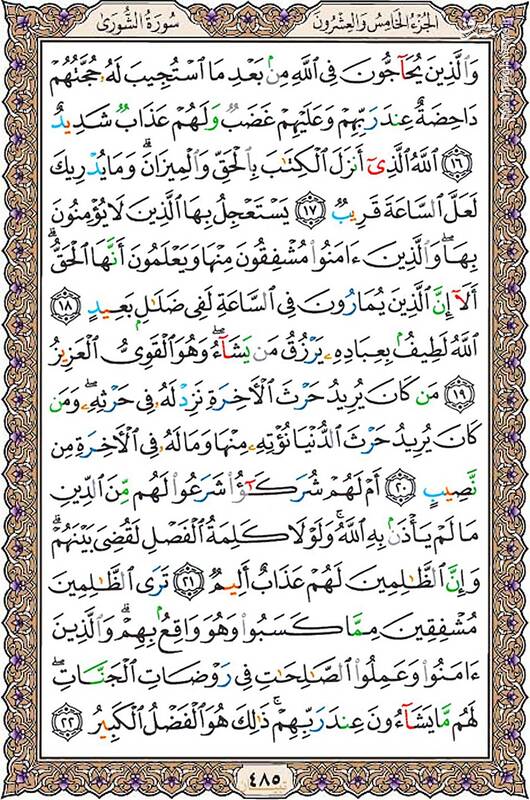 الجزء الخامس والعشرون
سورة الشورى
وَالَّذِينَ يُحَآجُّونَ فِى اللَّهِ مِنۢ بَعْدِ مَا اسْتُجِيبَ لَهُۥ حُجَّتُهُمْ
دَاحِضَةٌ عِندَ رَبِّهِمْ وَعَلَيْهِمْ غَضَبٌ وَلَهُمْ عَذَابٌ شَدِيدٌ
١٦ اللَّهُ الَّذِىٓ أَنزَلَ الْكِتَٰبَ بِالْحَقِّ وَالْمِيزَانَ ۗ وَمَا يُدْرِيكَ
لَعَلَّ السَّاعَةَ قَرِيبٌ ١٧ يَسْتَعْجِلُ بِهَا الَّذِينَ لَا يُؤْمِنُونَ
بِهَا ۖ وَالَّذِينَ ءَامَنُوا۟ مُشْفِقُونَ مِنْهَا وَيَعْلَمُونَ أَنَّهَا الْحَقُّ ۗ
أَلَآ إِنَّ الَّذِينَ يُمَارُونَ فِى السَّاعَةِ لَفِى ضَلَٰلٍۭ بَعِيدٍ ١٨
اللَّهُ لَطِيفٌۢ بِعِبَادِهِۦ يَرْزُقُ مَن يَشَآءُ ۖ وَهُوَ الْقَوِىُّ الْعَزِيزُ
١٩ مَن كَانَ يُرِيدُ حَرْثَ الْأَخِرَةِ نَزِدْ لَهُۥ فِى حَرْثِهِۦ ۖ وَمَن
كَانَ يُرِيدُ حَرْثَ الدُّنْيَا نُؤْتِهِۦ مِنْهَا وَمَا لَهُۥ فِى الْأَخِرَةِ مِن
نَّصِيبٍ ٢٠ أَمْ لَهُمْ شُرَكَٰٓؤُا۟ شَرَعُوا۟ لَهُم مِّنَ الدِّينِ
مَا لَمْ يَأْذَنۢ بِهِ اللَّهُ ۚ وَلَوْلَا كَلِمَةُ الْفَصْلِ لَقُضِىَ بَيْنَهُمْ ۗ
وَإِنَّ الظَّٰلِمِينَ لَهُمْ عَذَابٌ أَلِيمٌ ٢١ تَرَى الظَّٰلِمِينَ
مُشْفِقِينَ مِمَّا كَسَبُوا۟ وَهُوَ وَاقِعٌۢ بِهِمْ ۗ وَالَّذِينَ
ءَامَنُوا۟ وَعَمِلُوا۟ الصَّٰلِحَٰتِ فِى رَوْضَاتِ الْجَنَّاتِ ۖ
لَهُم مَّا يَشَآءُونَ عِندَ رَبِّهِمْ ۚ ذَٰلِكَ هُوَ الْفَضْلُ الْكَبِيرُ ٢٢
٤٨٥